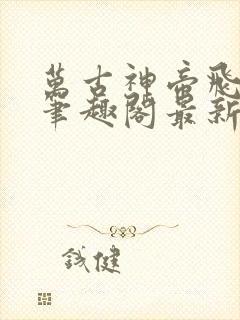 萬古神帝飛
筆趣閣最新
鋮健